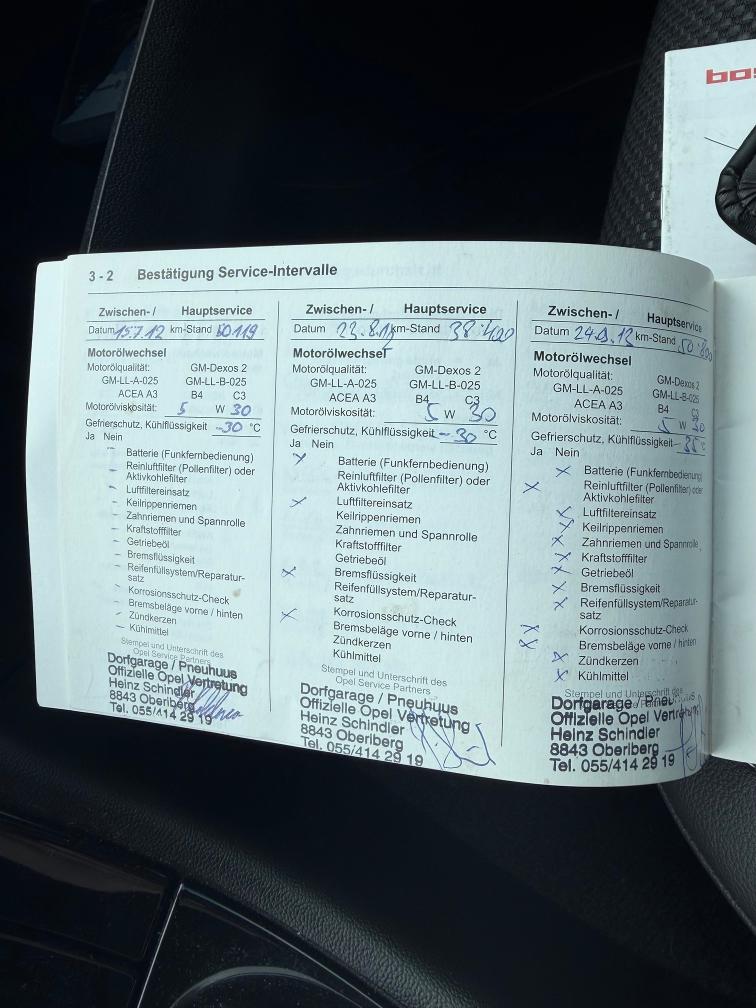 bo
3 - 2 Bestätigung Service-Intervalle
Zwischen- / Hauptservice
Datum 15.7.12 km-Stand
Motorölwechsel
Motorölqualität: GM-Dexos 2
GM-LL-A-025 GM-LL-B-025
ACEA A3 B4 C3
Motorölviskosität: 5 W 30
Gefrierschutz, Kühlflüssigkeit -30 °C
Ja Nein
– Batterie (Funkfernbedienung)
– Reinluftfilter (Pollenfilter) oder
Aktivkohlefilter
– Luftfiltereinsatz
– Keilrippenriemen
– Zahnriemen und Spannrolle
– Kraftstofffilter
– Getriebeöl
– Bremsflüssigkeit
– Reifenfüllsystem/Reparatur-
satz
– Korrosionsschutz-Check
– Bremsbeläge vorne / hinten
– Zündkerzen
– Kühlmittel
Stempel und Unterschrift des
Opel Service Partners
Dorfgarage / Pneuhuus
Offizielle Opel Vertretung
Heinz Schindler
8843 Oberiberg
Tel. 055/414 29 19
Zwischen- / Hauptservice
Datum km-Stand 38'400
Motorölwechsel
Motorölqualität: GM-Dexos 2
GM-LL-A-025 GM-LL-B-025
ACEA A3 B4 C3
Motorölviskosität: 5 W 30
Gefrierschutz, Kühlflüssigkeit -30 °C
Ja Nein
x Batterie (Funkfernbedienung)
Reinluftfilter (Pollenfilter) oder
Aktivkohlefilter
x Luftfiltereinsatz
Keilrippenriemen
Zahnriemen und Spannrolle
Kraftstofffilter
Getriebeöl
x Bremsflüssigkeit
Reifenfüllsystem/Reparatur-
satz
x Korrosionsschutz-Check
Bremsbeläge vorne / hinten
Zündkerzen
Kühlmittel
Stempel und Unterschrift des
Opel Service Partners
Dorfgarage / Pneuhuus
Offizielle Opel Vertretung
Heinz Schindler
8843 Oberiberg
Tel. 055/414 29 19
Zwischen- / Hauptservice
Datum 24.9.13 km-Stand
Motorölwechsel
Motorölqualität: GM-Dexos 2
GM-LL-A-025 GM-LL-B-025
ACEA A3 B4 C3
Motorölviskosität: 5 W 30
Gefrierschutz, Kühlflüssigkeit -35 °C
Ja Nein
x Batterie (Funkfernbedienung)
x Reinluftfilter (Pollenfilter) oder
Aktivkohlefilter
x Luftfiltereinsatz
x Keilrippenriemen
x Zahnriemen und Spannrolle
x Kraftstofffilter
x Getriebeöl
x Bremsflüssigkeit
x Reifenfüllsystem/Reparatur-
satz
x Korrosionsschutz-Check
x Bremsbeläge vorne / hinten
x Zündkerzen
x Kühlmittel
Stempel und Unterschrift des
Dorfgarage / Pneu
Offizielle Opel Vertretung
Heinz Schindler
8843 Oberiberg
Tel. 055/414 29 19